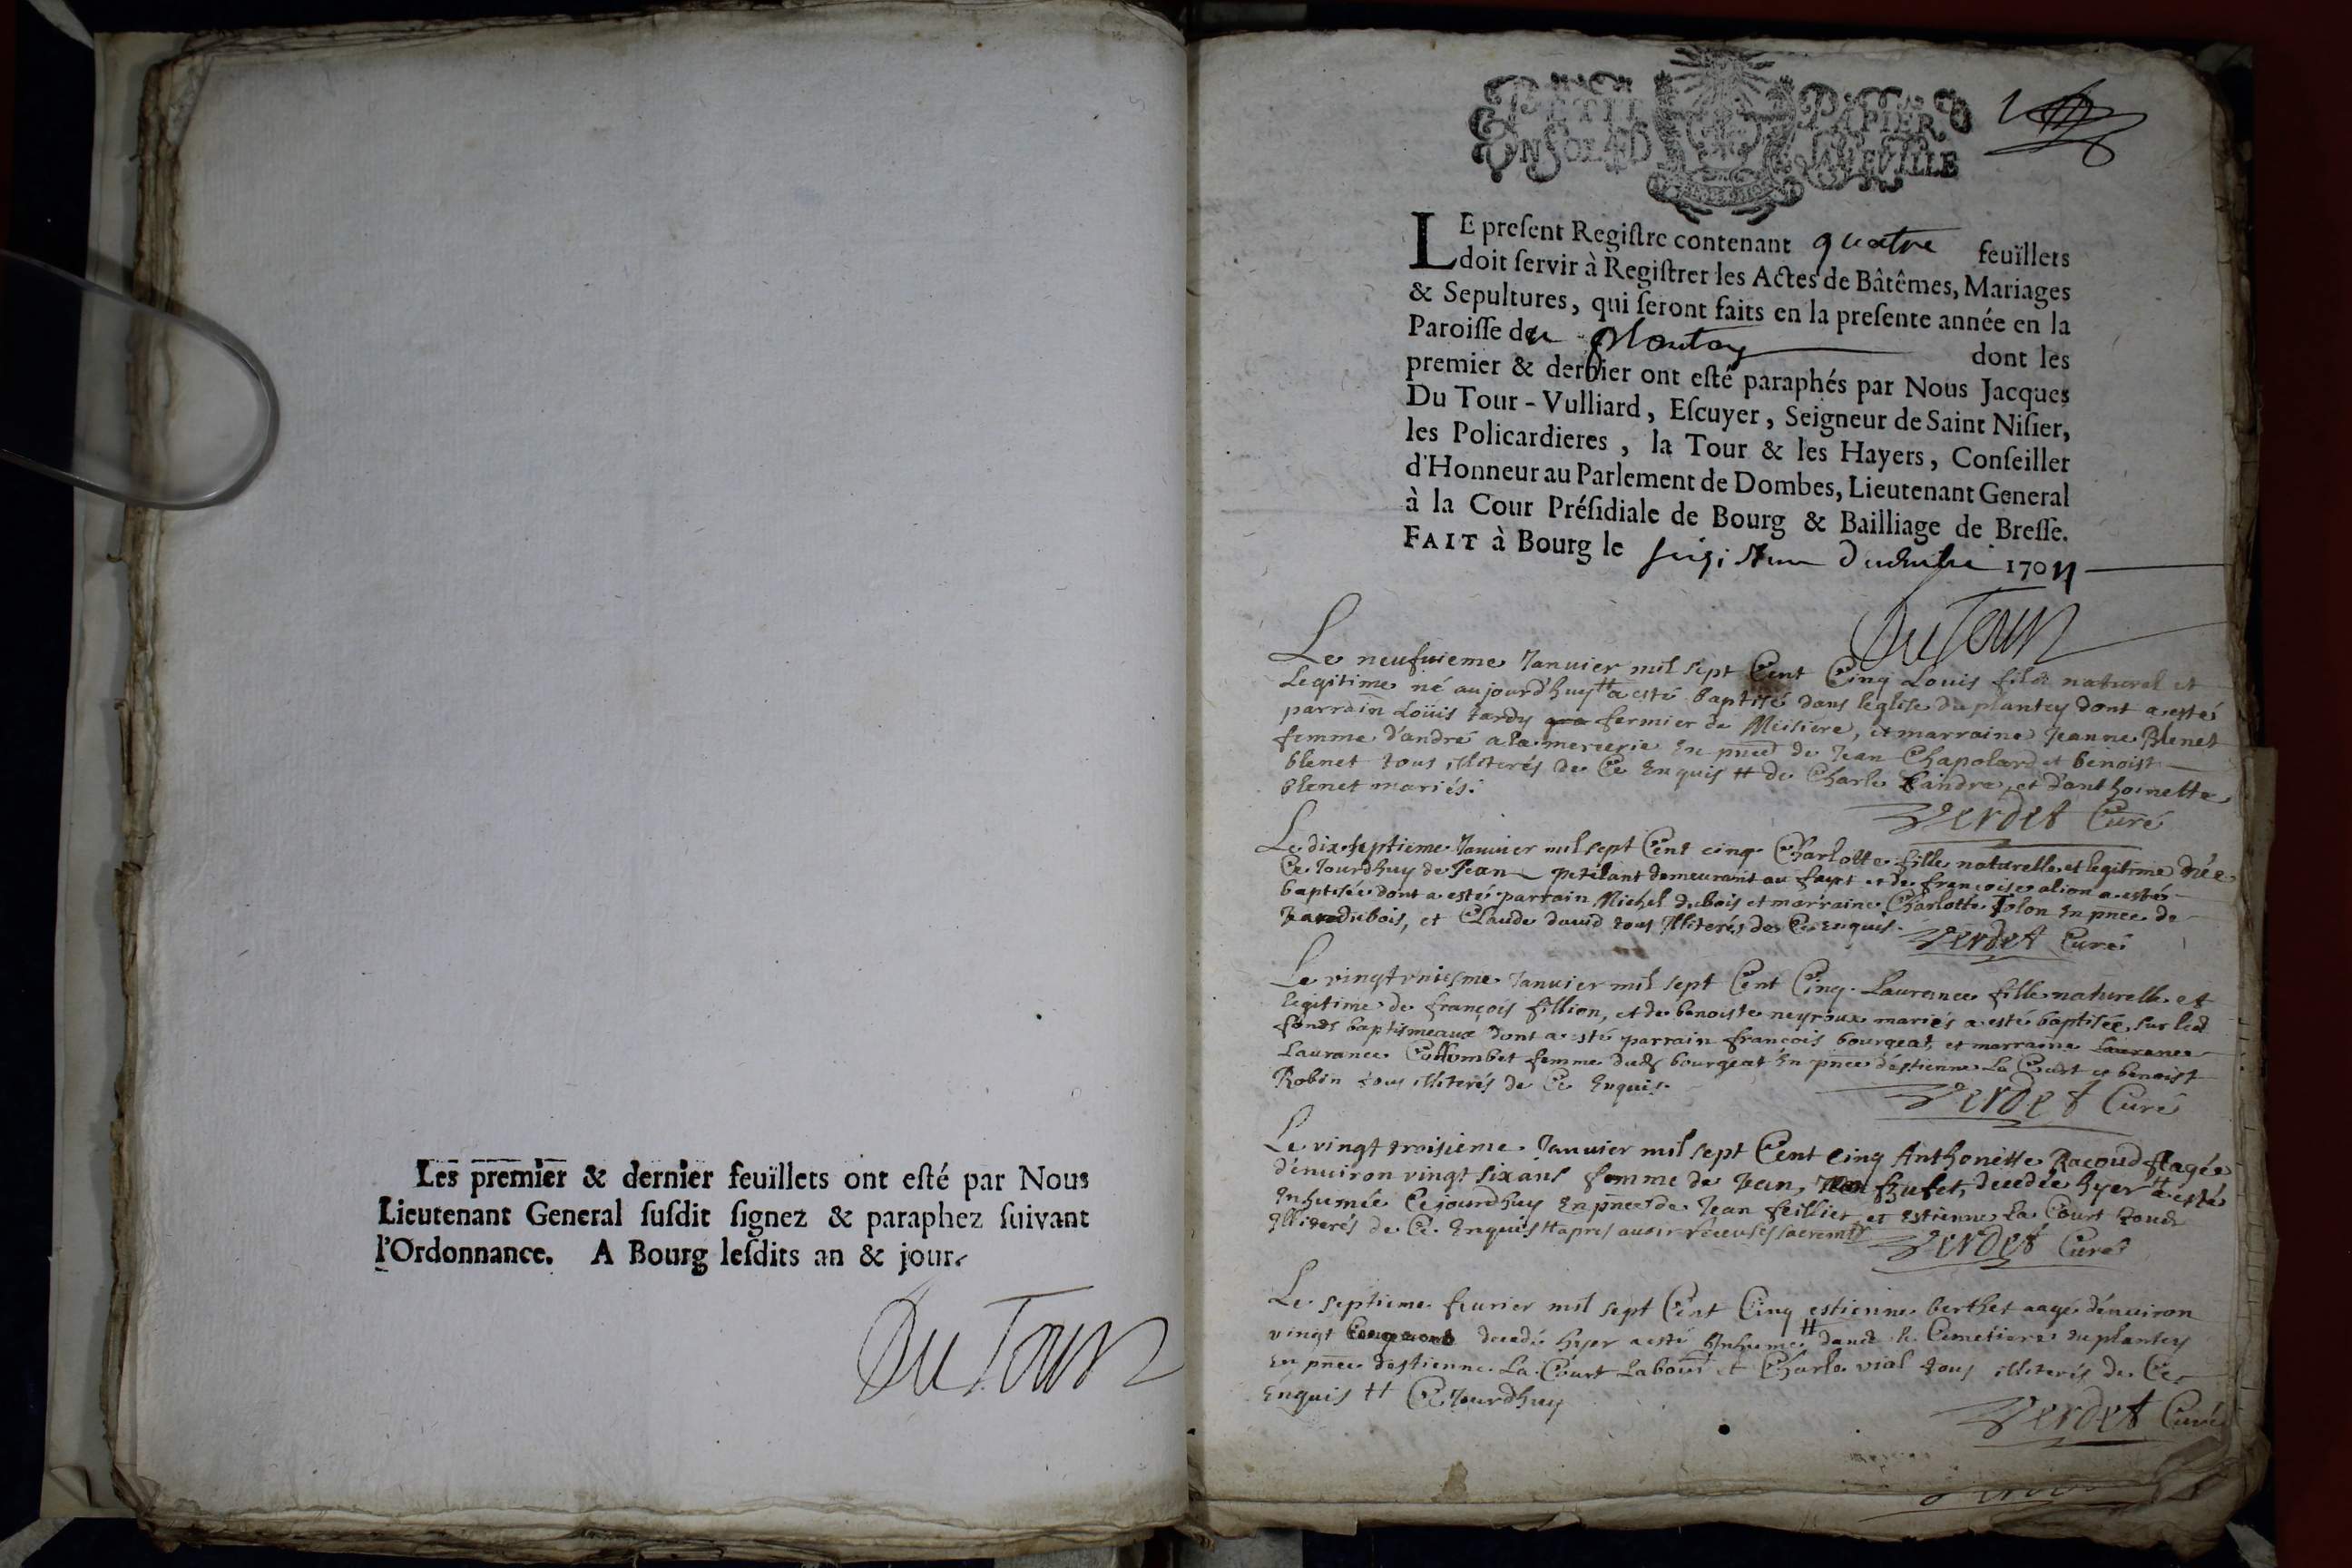 Les premier & dernier feuïllets ont eſté par Nous
Lieutenant General ſuſdit ſignez & paraphez ſuivant
l'Ordonnance. A Bourg leſdits an & jour.
DuTour
PETIT PAPIER
UN SOL 4 D LA FEUILLE
LE preſent Regiſtre contenant quatre feuïllets
doit ſervir à Regiſtrer les Actes de Bâtêmes, Mariages
& Sepultures, qui ſeront faits en la preſente année en la
Paroiſſe du plantay dont les
premier & dernier ont eſté paraphés par Nous Jacques
Du Tour-Vulliard, Eſcuyer, Seigneur de Saint Niſier,
les Policardieres, la Tour & les Hayers, Conſeiller
d'Honneur au Parlement de Dombes, Lieutenant General
à la Cour Préſidiale de Bourg & Bailliage de Breſſe.
FAIT à Bourg le 170
DuTour
Le neufuieme Januier mil sept Cent Cinq Louis fils naturel et
Legitime né aujourd'huy # a esté baptisé dans l'eglise du plantey dont a esté
parrain Loüis tardy fermier de Meisiere, et marraine Jeanne Blenet
femme d'andré a la mercerie En pnce de Jean Chapolard et benoist
blenet tous illiterés de Ce Enquis # de Charle et d'anthoinette
blenet mariés.
Verdet Curé
Le dix septieme Januier mil sept Cent cinq Charlotte fille naturelle et legitime née
Ce Jourdhuy de Jean petilant demeurant au fayet et de françoise alion a esté
baptisée dont a esté parrain Michel dubois et marraine Charlotte Jolon En pnce de
dubois, et Claude dauid tous Illiterés de Ce enquis.
Verdet Curé
Le vingt vniesme Januier mil sept Cent Cinq Laurance fille naturelle et
legitime de françois fillion, et de benoiste neyroux mariés a esté baptisée, sur les
fonds baptismeaux dont a esté parrain françois bourgeat et marraine Laurance
Laurance Collombet femme dud bourgeat En pnce d'estienne La Court et benoist
Robin tous illiterés de Ce Enquis.
Verdet Curé
Le vingt troisieme Januier mil sept Cent cinq Anthonitte Racoud aagée
d'enuiron vingt six ans femme de Jean, decedée hyer # a esté
Inhumée Cejourdhuy En pnce de Jean feillier et Estienne La Court tous
Illiterés de Ce Enquis # apres auoir receu ses sacremts
Verdet Curé
Le septieme feurier mil sept Cent Cinq estienne berthet aagé d'enuiron
vingt decedé hyer a esté Inhumé # dans le Cimetiere du plantey
En pnce d'estienne La Court Labour et Charle vial tous illiterés de Ce
Enquis # Ce Jourdhuy
Verdet Curé